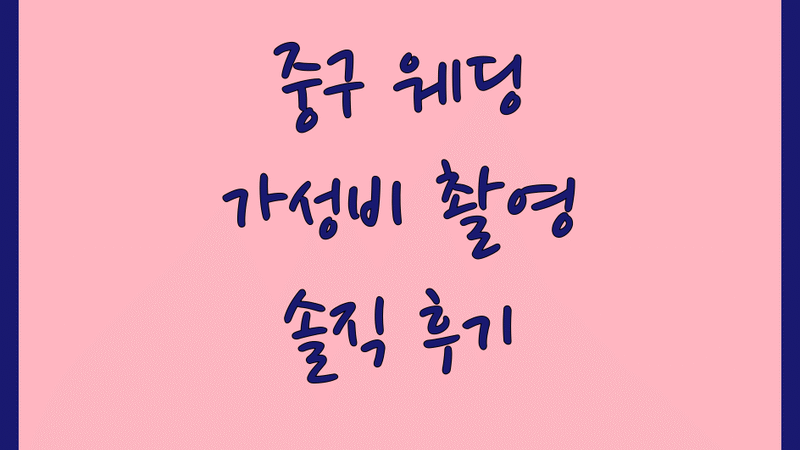 중구 웨딩
가성비 촬영
솔직 후기